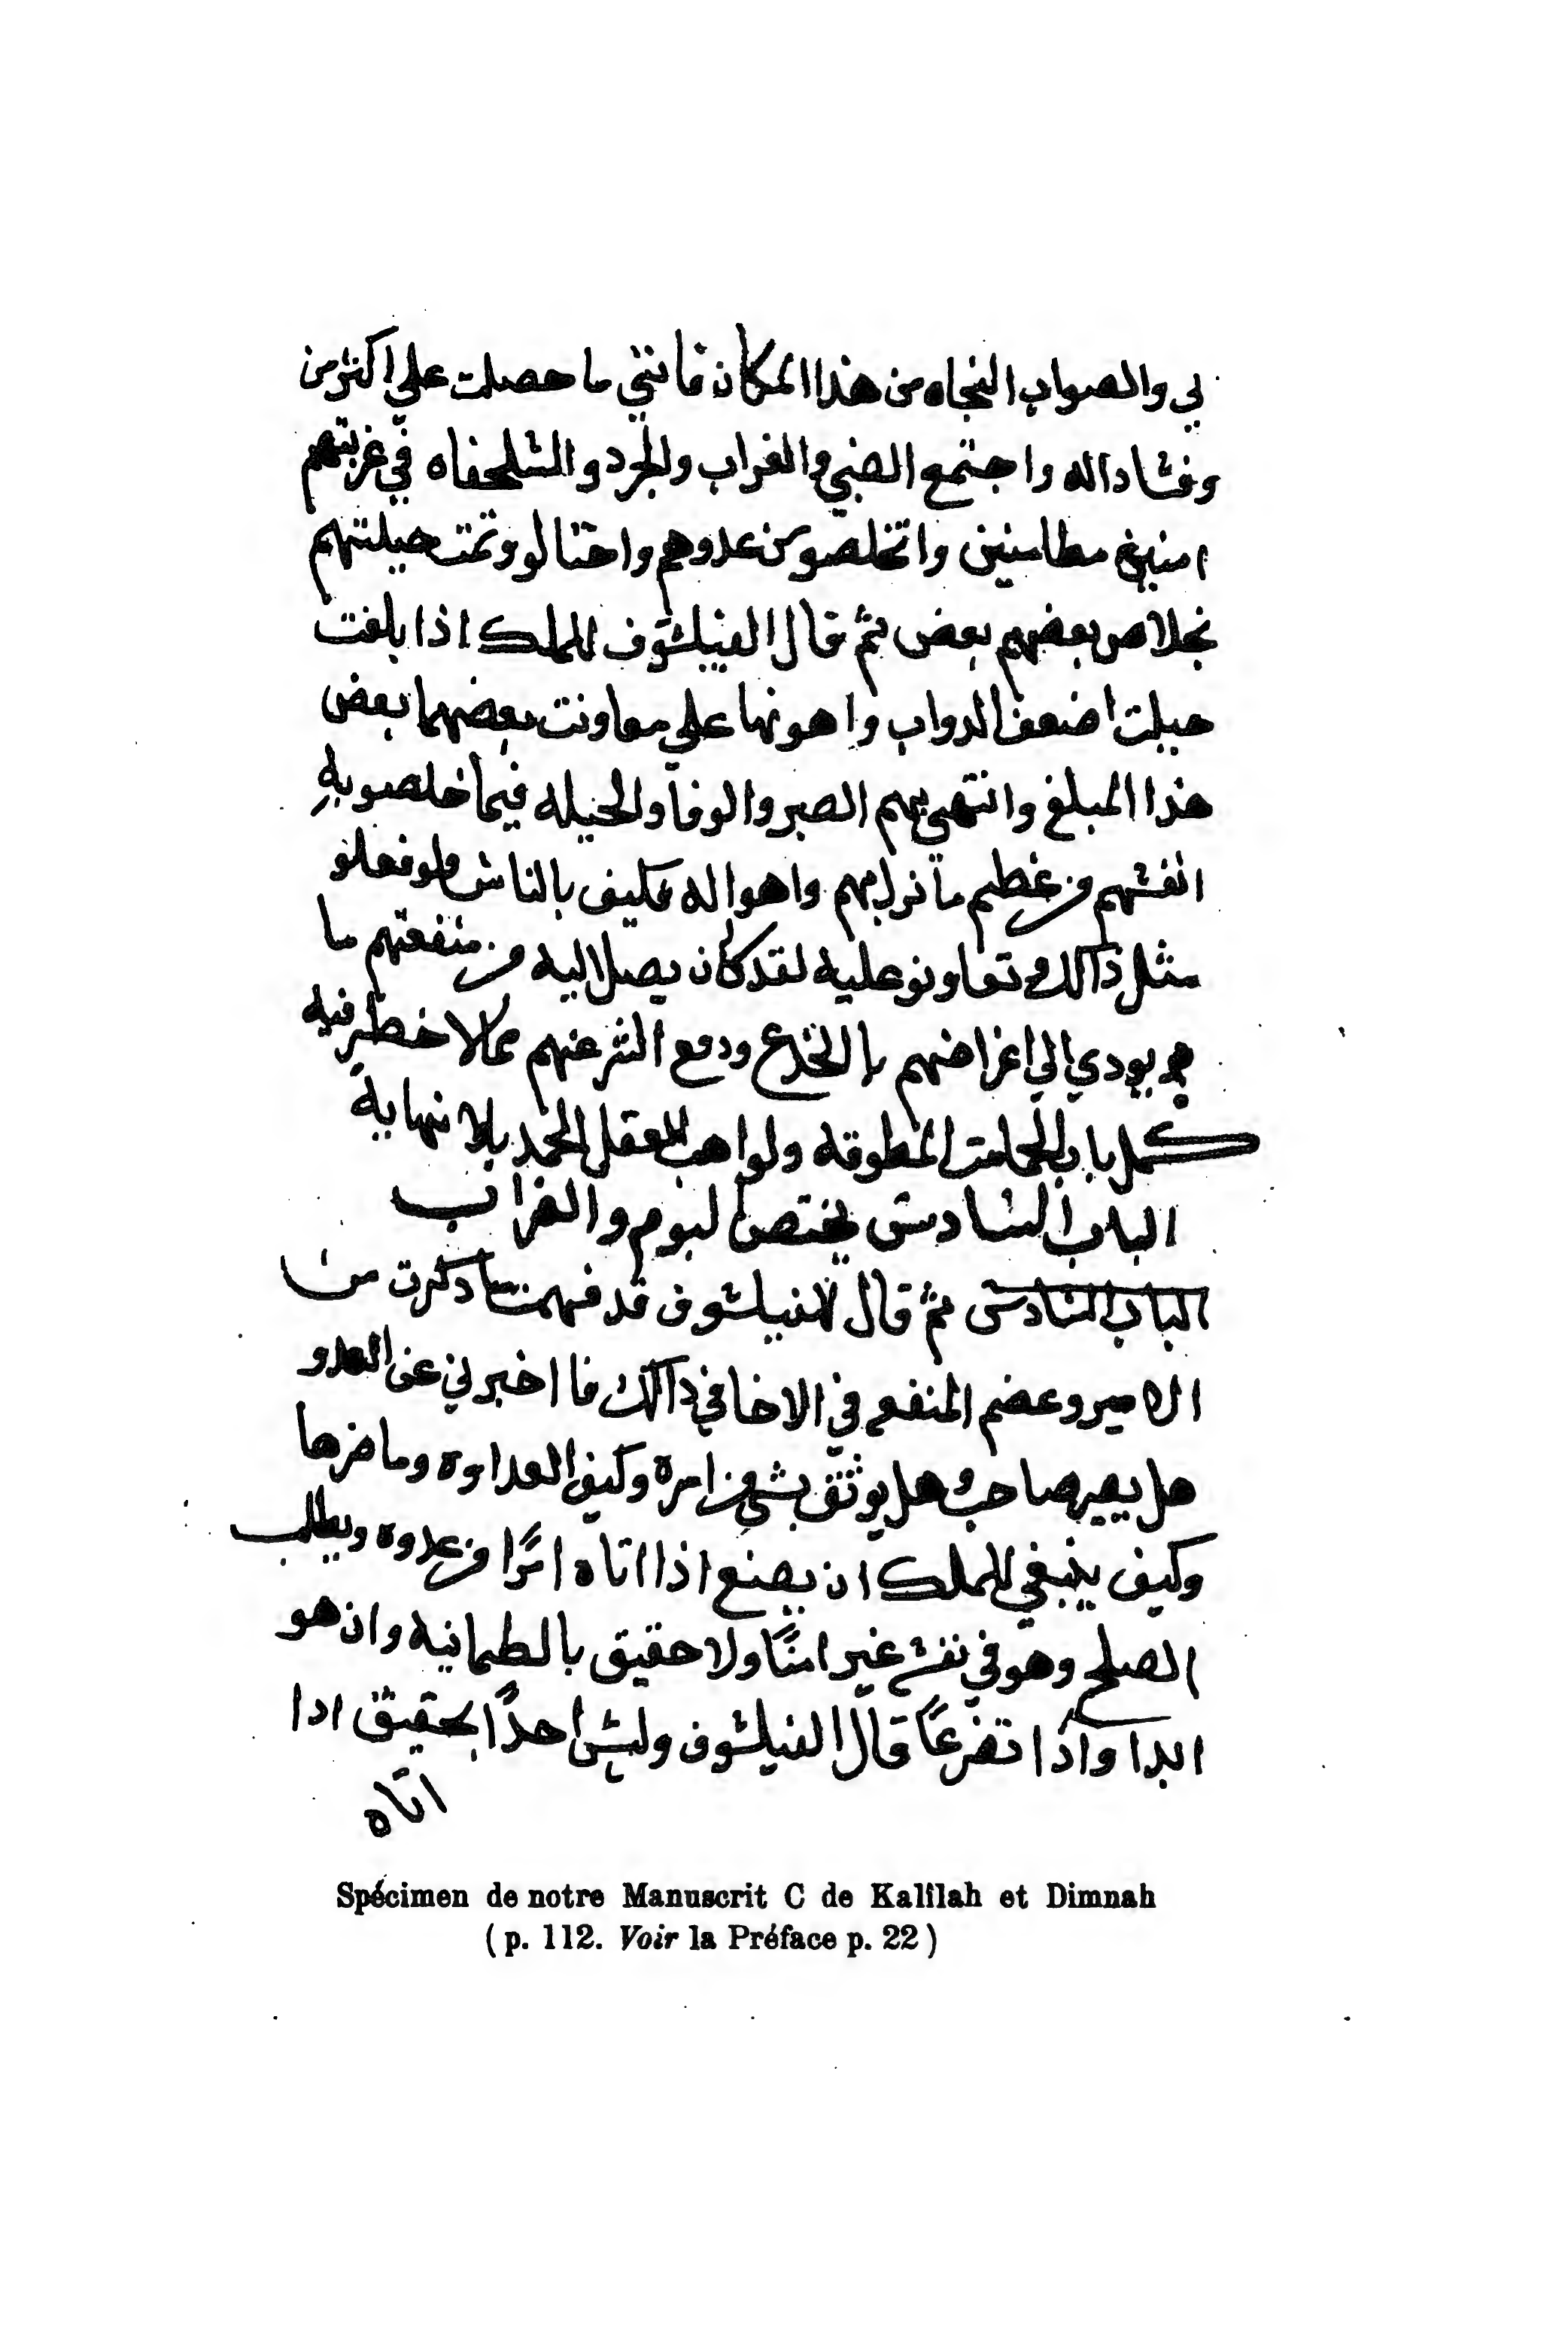 لي والصواب النجاه من هذا المكان فانني ما حصلت علي اكثر من
وفشاد اله واجتمع الضبي والغراب والجرد والشلحفاه في غربتهم
امنين مطامنين واتخلصو من عدوهم واحتالو وتمت حيلتهم
بخلاص بعضهم بعض ثم قال الفيلشوف للملك اذا بلغت
حيلت اضعف الدواب واهونها علي معاونت بعضهما بعض
هذا المبلغ وانتهي بهم الصبر والوفا والحيله فيما خلصو به
انفشهم من عظيم ما نزل بهم واهواله فكيف بالناش ولو فعلو
مثل ذالك وتعاونو عليه لقد كان يصل اليه من منفعتهم ما
يودي الي اغراضهم بالخداع ودفع الشر عنهم مما لا خطر فيه
كمل باب الحمامت المطوقه ولواهب العقل الحمد بلا نهاية
الباب الشادش يختص البوم والغراب
الباب الشادش ثم قال للفيلشوف قد فهمت ما دكرت من
الامير وعضم المنفع في الاخا في ذالك فا اخبرني عن العدو
هل يصير صاحب وهل يوثق بشي من امرة وكيف العداوة وما ضرها
وكيف ينبغي للملك ان يصنع اذا اتاه امرًا من عدوة ويطلب
الصلح وهو في نفشه غير امنًا ولا حقيق بالطمانية وان هو
ابدا واذا تضرعًا قال الفيلشوف وليش احدًا بحقيق ادا
اتاه
Spécimen de notre Manuscrit C de Kalîlah et Dimnah
( p. 112. Voir la Préface p. 22 )